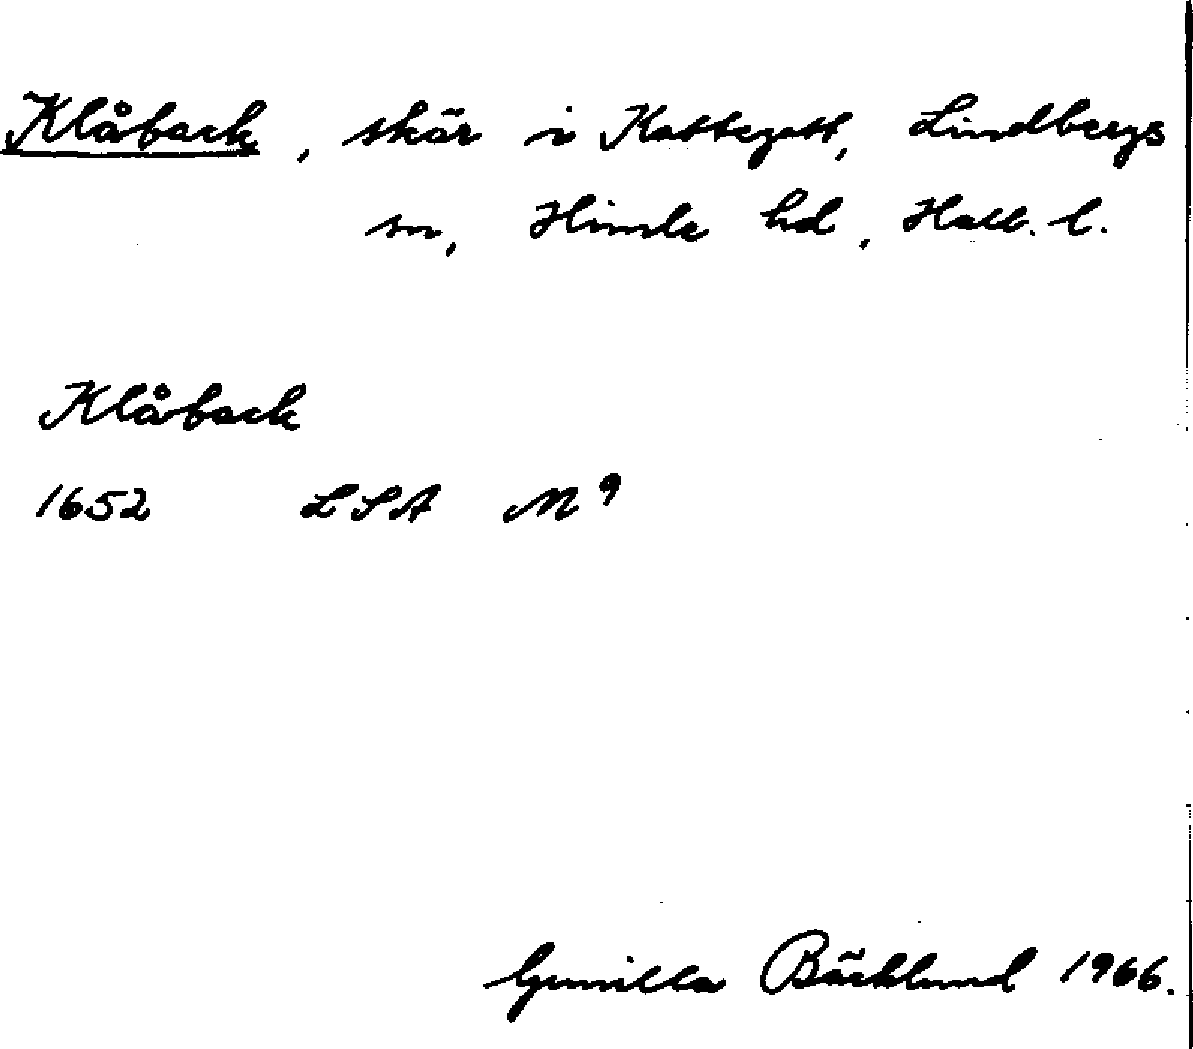 Klåback, skär i Kattegatt, Lindbergs
sn, Himle hd, Hall. l.
Klåback
1652 LSA M 9
Gunilla Bäcklund 1966.